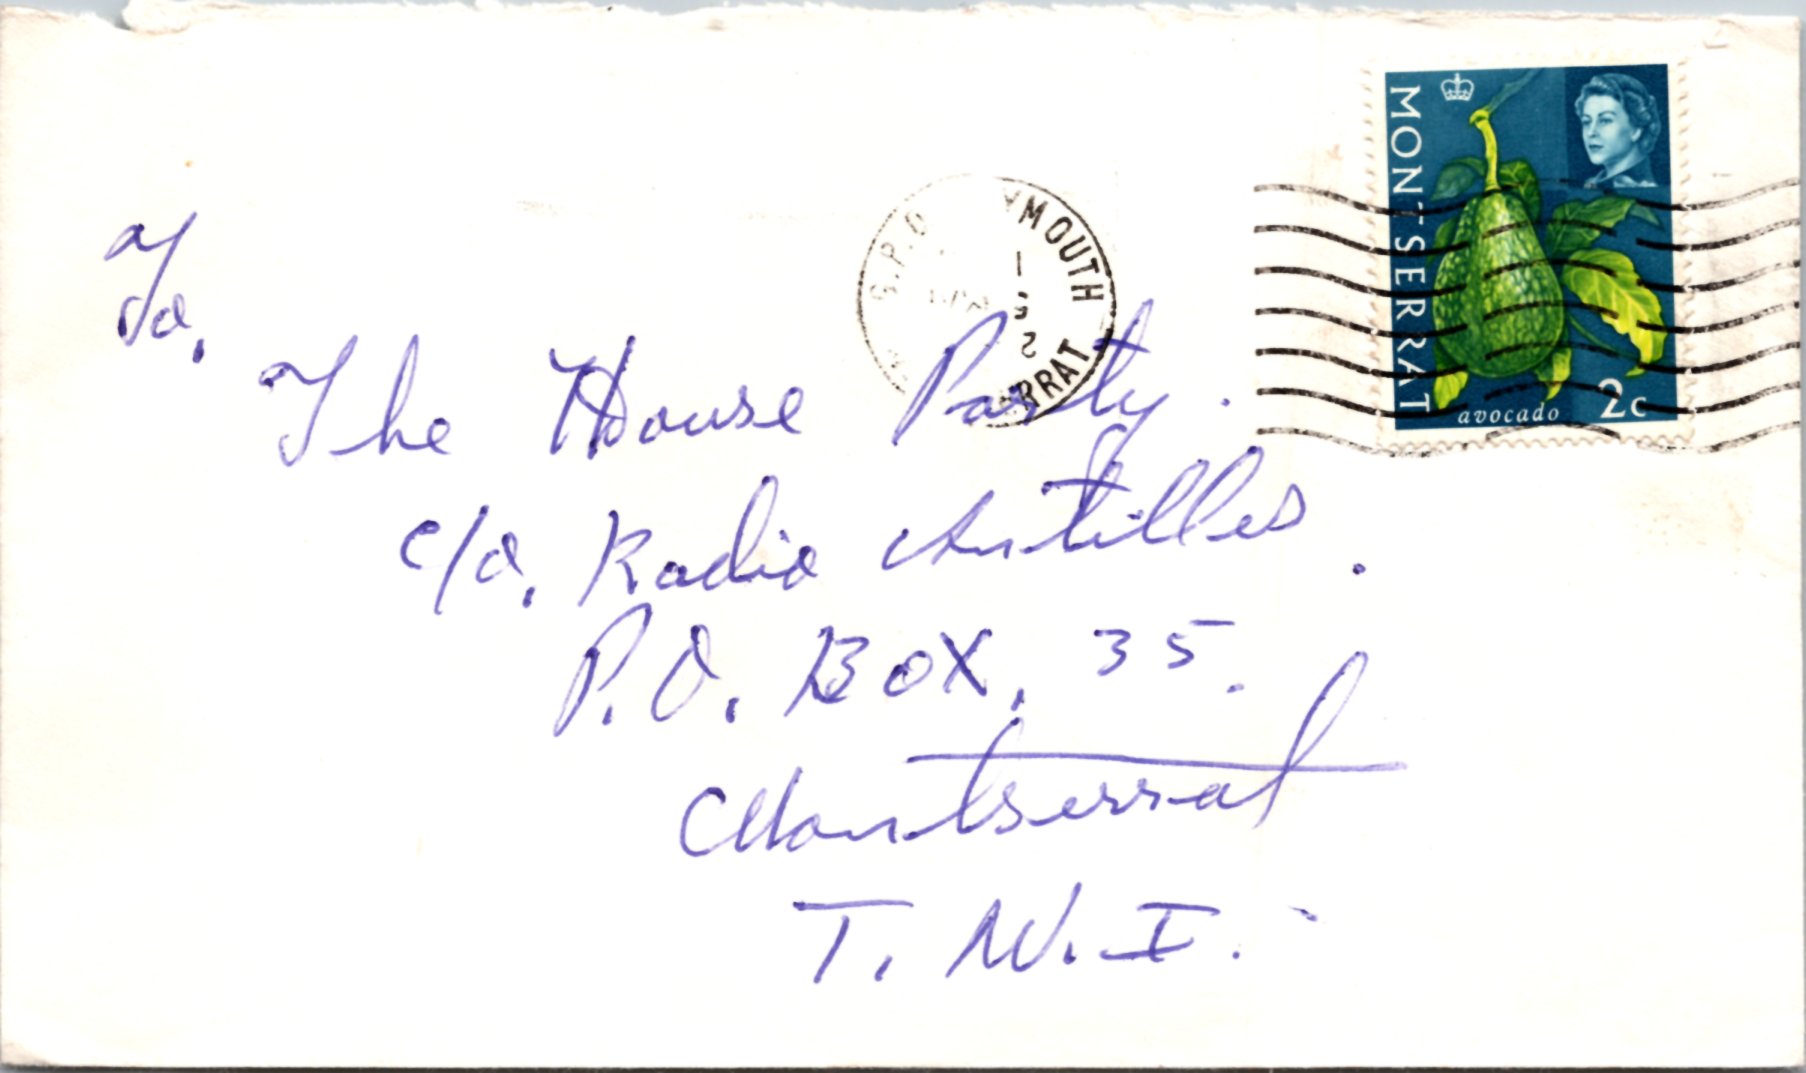 MONTSERRAT
avocado 2c
G.P.O
YMOUTH
RRAT
To,
The House Party.
c/o, Radio Antilles.
P.O. BOX, 35.
Montserrat
T. W. I.